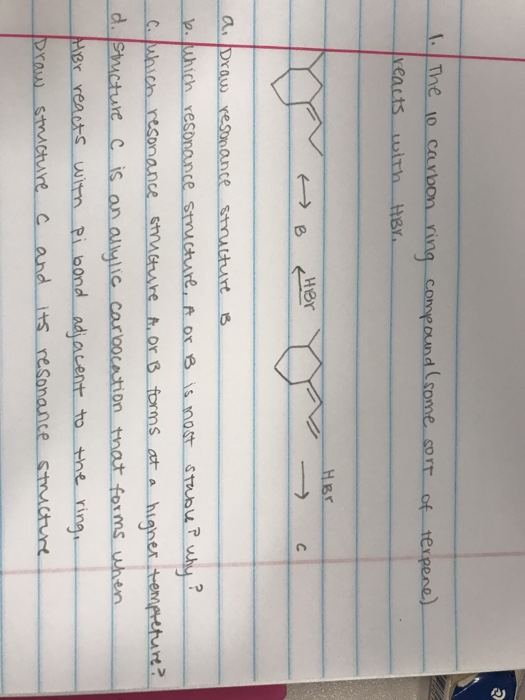 1. The 10 carbon ring compound (some sort of terpene)
reacts with HBr.
HBr
HBr
B
C
a. Draw resonance structure B
b. Which resonance structure, A or B is most stable? Why?
c. Which resonance structure A, or B forms at a higher tempreture?
d. Structure C is an allylic carbocation that forms when
HBr reacts with pi bond adjacent to the ring.
Draw structure C and its resonance structure